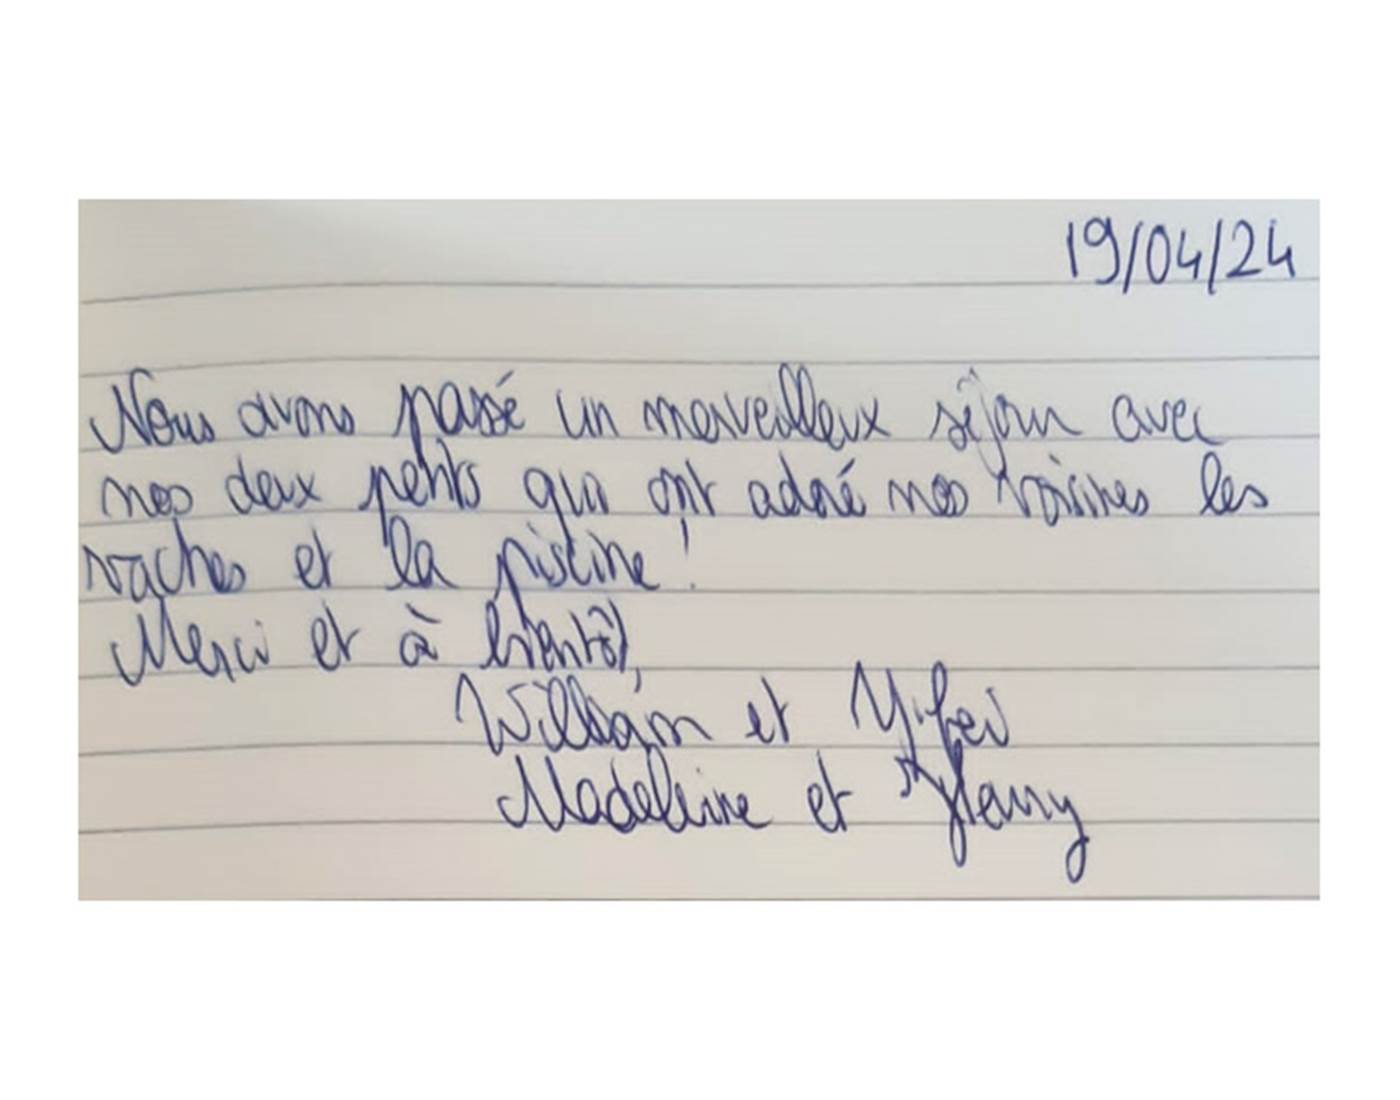 19/04/24
Nous avons passé un merveilleux séjour avec
nos deux petits qui ont adoré nos voisines les
vaches et la piscine !
Merci et à bientôt,
William et Yifei
Madeleine et Harry